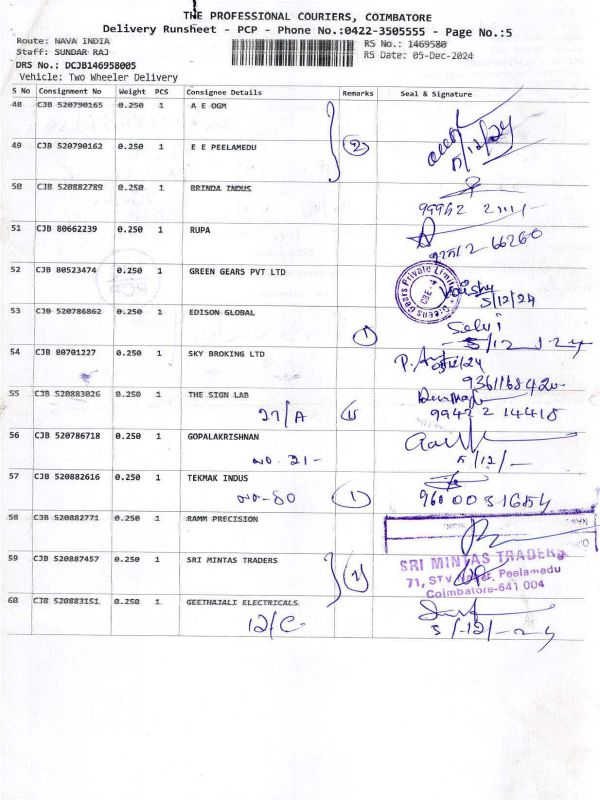 THE PROFESSIONAL COURIERS, COIMBATORE
Delivery Runsheet - PCP - Phone No.:0422-3505555 - Page No.:5
Route: NAVA INDIA
RS No.: 1469580
Staff: SUNDAR RAJ
RS Date: 05-Dec-2024
DRS No.: DCJB146958005
Vehicle: Two Wheeler Delivery
S No Consignment No Weight PCS Consignee Details Remarks Seal & Signature
48 CJB 520790165 0.250 1 A E OGM
5/12/24
49 CJB 520790162 0.250 1 E E PEELAMEDU 2
50 CJB 520882789 0.250 1 BRINDA INDUS
51 CJB 80662239 0.250 1 RUPA
66260
52 CJB 80523474 0.250 1 GREEN GEARS PVT LTD
Greens Gears Private Limited
CBE-4
5/12/24
53 CJB 520786862 0.250 1 EDISON GLOBAL 1
Selvi
5/12/24
54 CJB 80701227 0.250 1 SKY BROKING LTD
9361168420
55 CJB 520883026 0.250 1 THE SIGN LAB
27/A 11 99422 14418
56 CJB 520786718 0.250 1 GOPALAKRISHNAN
no. 21- 5/12/-
57 CJB 520882616 0.250 1 TEKMAK INDUS
no-80 1 9600031654
58 CJB 520882771 0.250 1 RAMM PRECISION
59 CJB 520887457 0.250 1 SRI MINTAS TRADERS
SRI MINTAS TRADERS
71, STV Nagar, Peelamedu
Coimbatore-641 004
60 CJB 520883151 0.250 1 GEETHAJALI ELECTRICALS
12/C 5/-12/-24